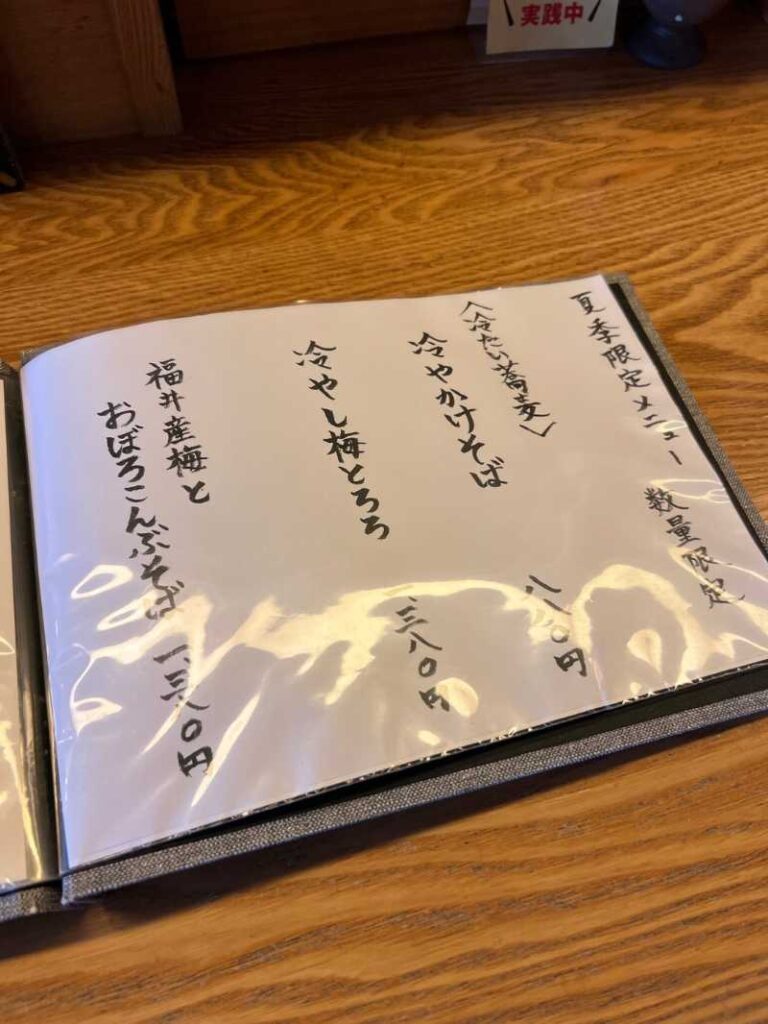 実践中
夏季限定メニュー 数量限定
〈冷たい蕎麦〉
冷やかけそば 八八〇円
冷やし梅とろろ 、三八〇円
福井産梅と
おぼろこんぶそば 一、三八〇円